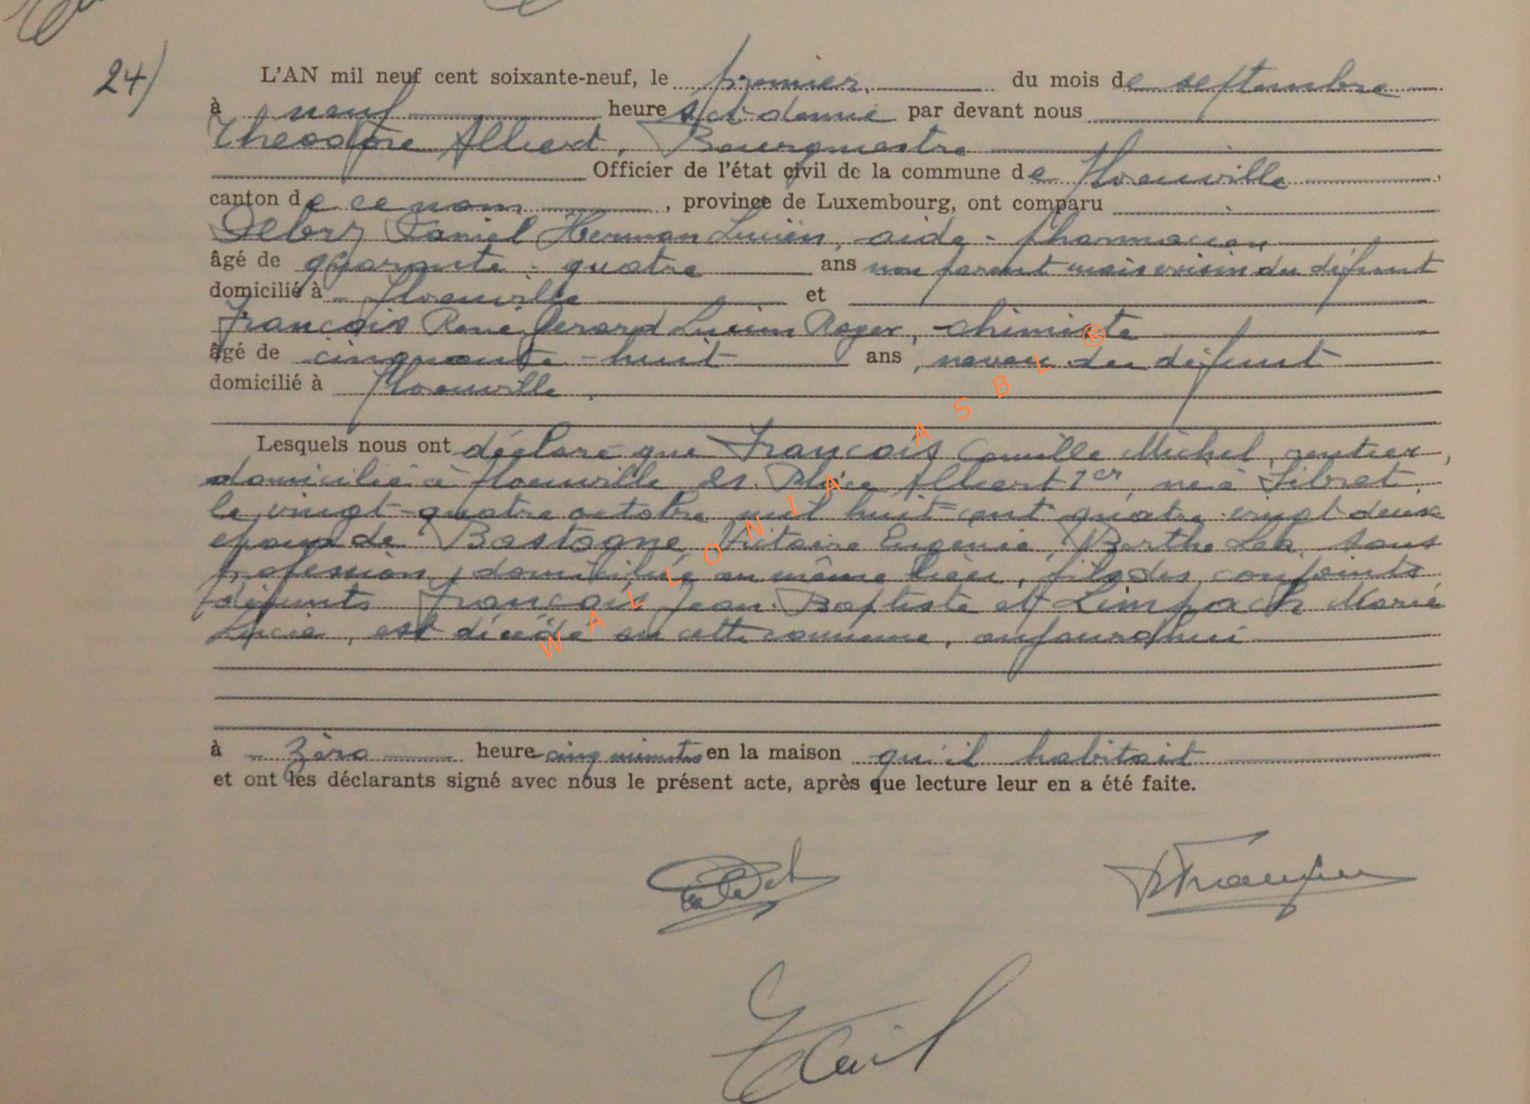 24)
L'AN mil neuf cent soixante-neuf, le premier du mois de septembre
à neuf heures et demie par devant nous
Théodore Albert, Bourgmestre
Officier de l'état civil de la commune de Florenville,
canton de ce nom, province de Luxembourg, ont comparu
Daniel Herman Lucien, aide-pharmacien
âgé de quarante-quatre ans non parent mais voisin du défunt
domicilié à Florenville et
François René Gerard Lucien Roger, chimiste
âgé de cinquante-huit ans, neveu du défunt
domicilié à Florenville.
Lesquels nous ont déclaré que François Camille Michel, rentier,
domicilié à Florenville 21. Place Albert 1er, né à Sibret,
le vingt-quatre octobre mil huit cent quatre vingt deux
époux de Bastogne Victoire Eugénie Berthe Léa, sans
profession, domiciliée au même lieu, fils des conjoints
défunts François Jean-Baptiste et Limpach Marie
Lucie, est décédé en cette commune, aujourd'hui
à zéro heure cinq minutes en la maison qu'il habitait
et ont les déclarants signé avec nous le présent acte, après que lecture leur en a été faite.
R François
WALLONIA ASBL ®